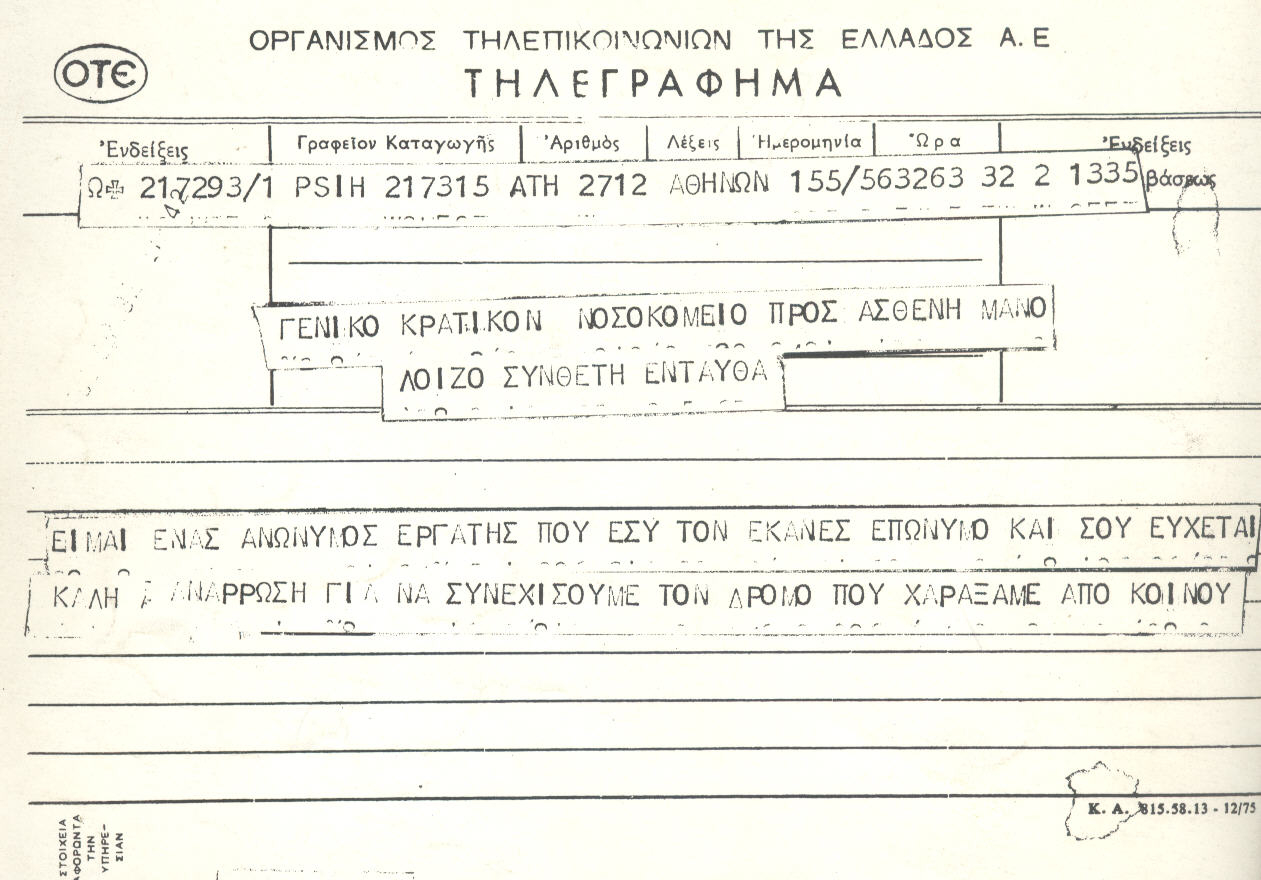 ΟΡΓΑΝΙΣΜΟΣ ΤΗΛΕΠΙΚΟΙΝΩΝΙΩΝ ΤΗΣ ΕΛΛΑΔΟΣ Α.Ε
ΟΤΕ
ΤΗΛΕΓΡΑΦΗΜΑ
Ἐνδείξεις Γραφεῖον Καταγωγῆς Ἀριθμὸς Λέξεις Ἡμερομηνία Ὥρα Ἐνδείξεις
Ω✠ 217293/1 PSIH 217315 ATH 2712 ΑΘΗΝΩΝ 155/563263 32 2 1335 βάσεως
ΓΕΝΙΚΟ ΚΡΑΤΙΚΟΝ ΝΟΣΟΚΟΜΕΙΟ ΠΡΟΣ ΑΣΘΕΝΗ ΜΑΝΟ
ΛΟΙΖΟ ΣΥΝΘΕΤΗ ΕΝΤΑΥΘΑ
ΕΙΜΑΙ ΕΝΑΣ ΑΝΩΝΥΜΟΣ ΕΡΓΑΤΗΣ ΠΟΥ ΕΣΥ ΤΟΝ ΕΚΑΝΕΣ ΕΠΩΝΥΜΟ ΚΑΙ ΣΟΥ ΕΥΧΕΤΑΙ
ΚΑΛΗ ΑΝΑΡΡΩΣΗ ΓΙΑ ΝΑ ΣΥΝΕΧΙΣΟΥΜΕ ΤΟΝ ΔΡΟΜΟ ΠΟΥ ΧΑΡΑΞΑΜΕ ΑΠΟ ΚΟΙΝΟΥ
Κ. Α. 815.58.13 - 12/75
ΣΤΟΙΧΕΙΑ
ΑΦΟΡΩΝΤΑ
ΤΗΝ
ΥΠΗΡΕ-
ΣΙΑΝ